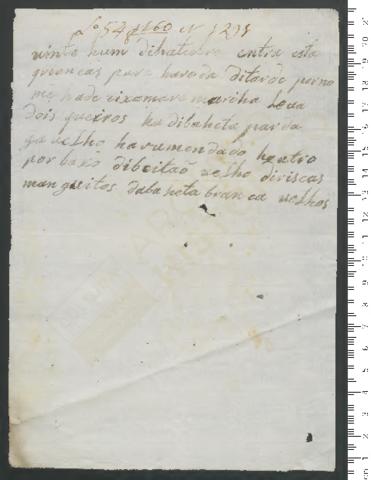 fo 54 1160 N 1291
vinte hum dihateoito entra esta
criencas para havoda ditarde porno
me hade eixamare mariha leva
dois queiros hu dibaheta parda
ja velho ha rumendado he outro
por baxo dibeitaõ velho diriscas
manguitos dabaheta branca velhos